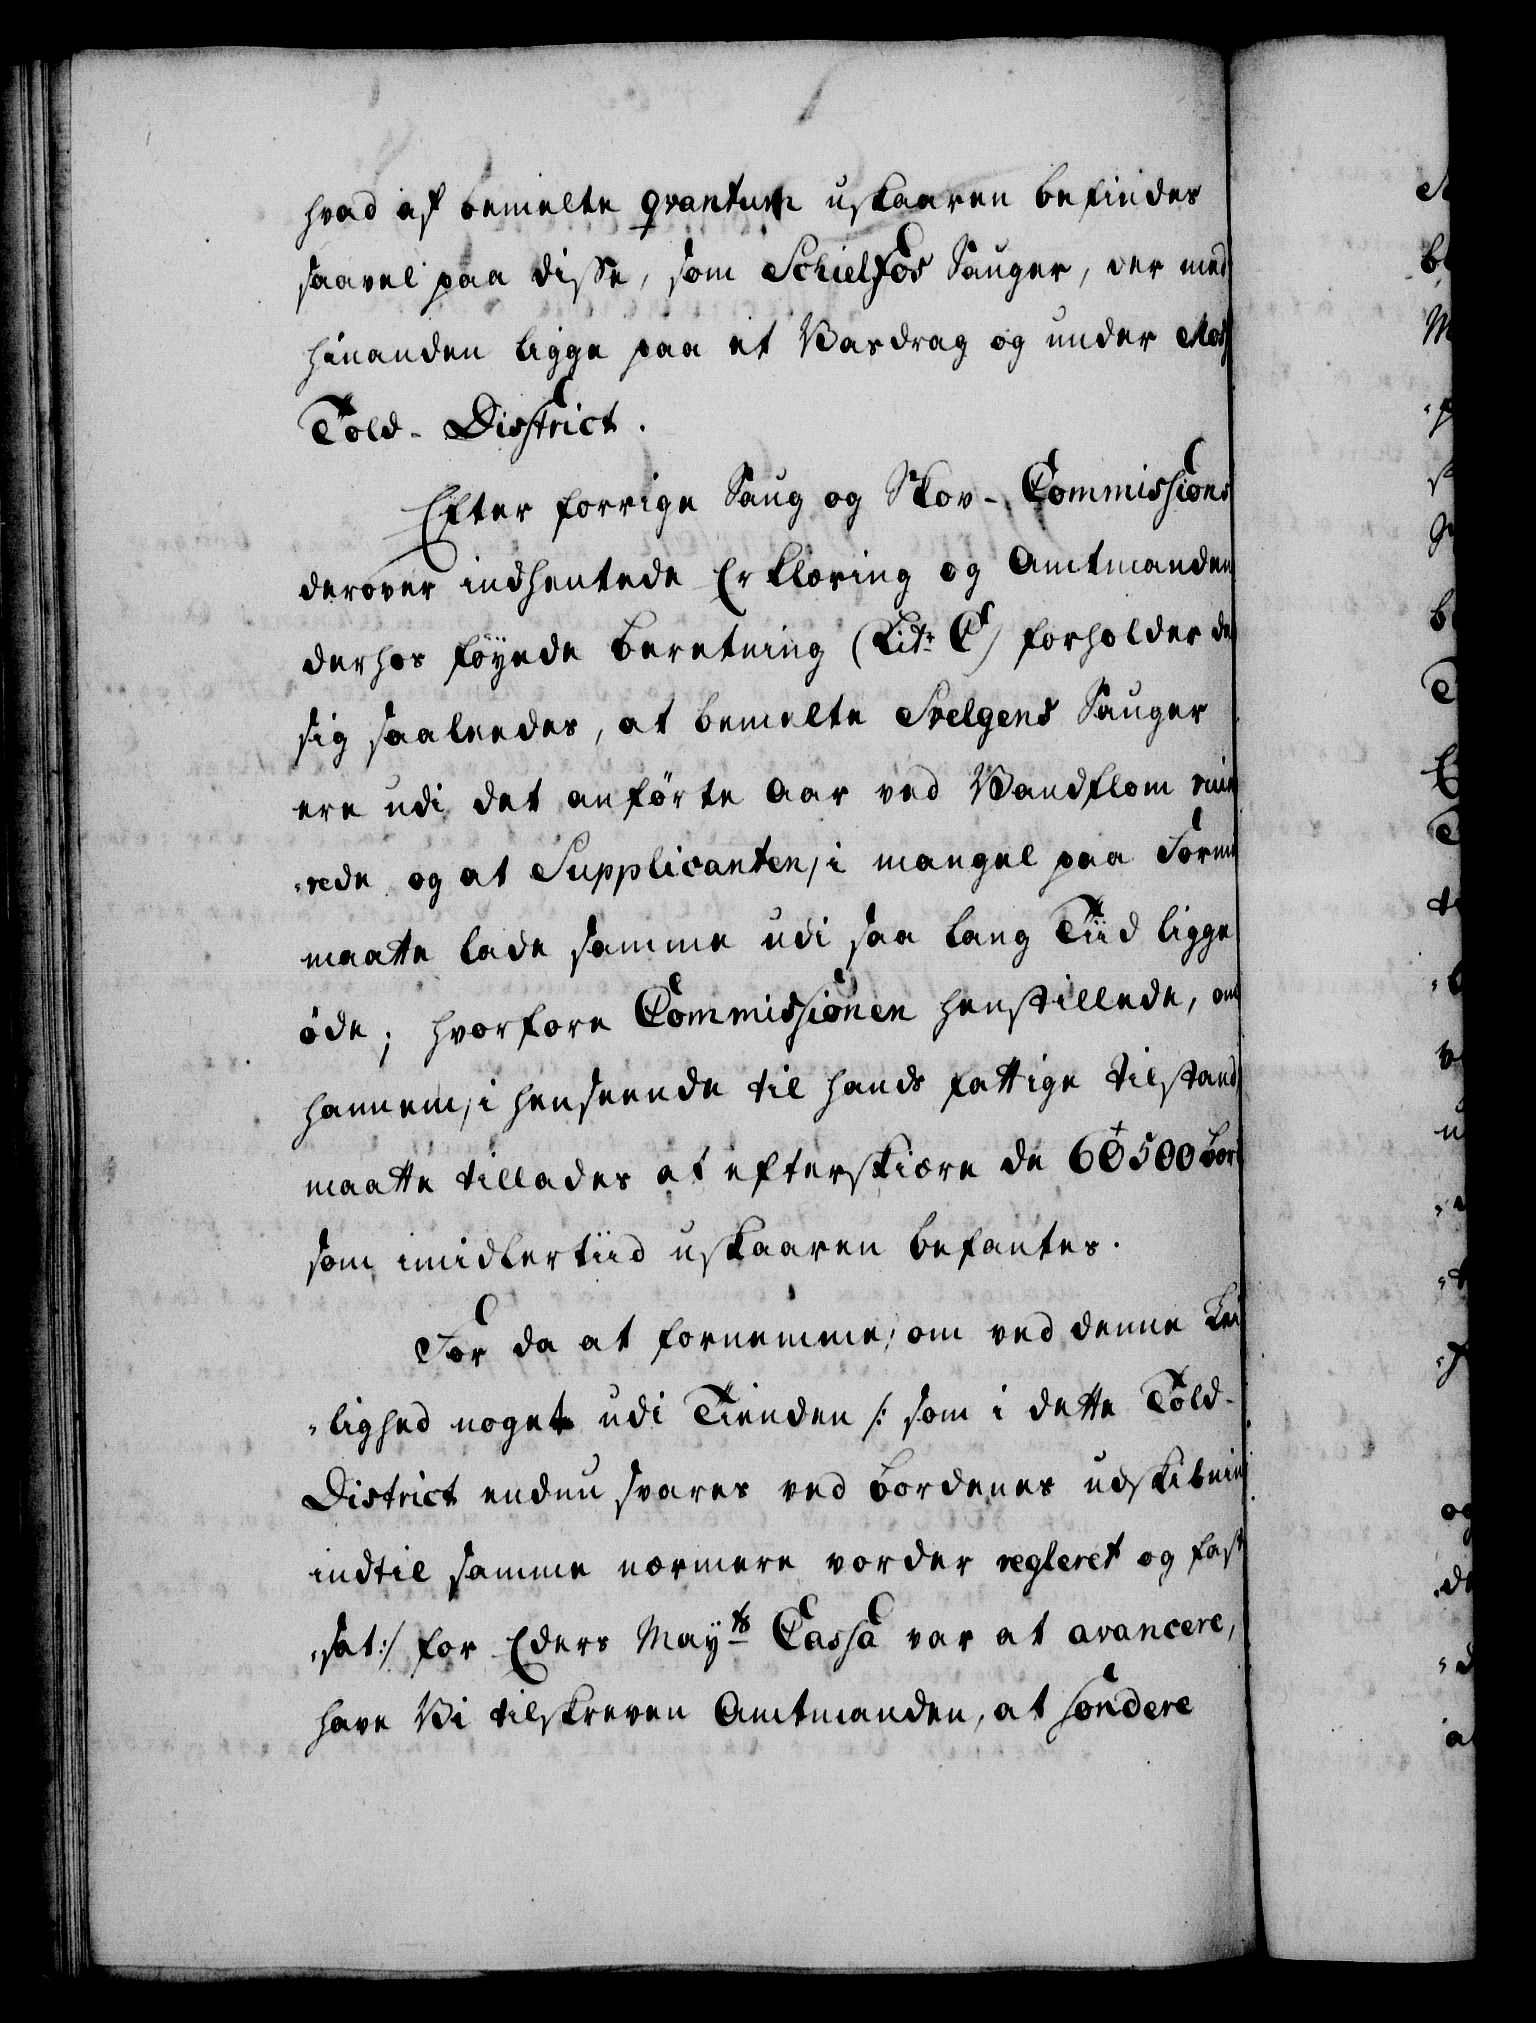 hvad af bemelte qvantum uskaaren befindes
saavel paa disse, som Schielfos Sauger, der med
hinanden ligge paa et Vasdrag og under Mos
Told-District.
Efter forrige Saug og Skov-Commissions
derover indhentede Erklæring og Amtmanden
derhos føyede Beretning (Litr. C) forholder de
sig saaleedes, at bemelte Svelgens Sauger
ere udi det anførte Aar ved Vandflom ruin
„rede og at Supplicanten, i mangel paa Form
maatte lade samme udi saa lang Tiid ligge
øde; hvorfore Commissionen henstillede, om
hannem, i henseende til hands fattige tilstand
maatte tillades at efterskiære de 60500 bord
som imidlertiid uskaaren befantes.
For da at fornemme, om ved denne Lei
„lighed noget udi Tienden /: som i dette Told-
District endnu svares ved bordenes udskibning
indtil samme nærmere vorder regleret og fast
„sat :/ for Eders Mayts Cassa var at avancere,
have Vi tilskreven Amtmanden, at sondere